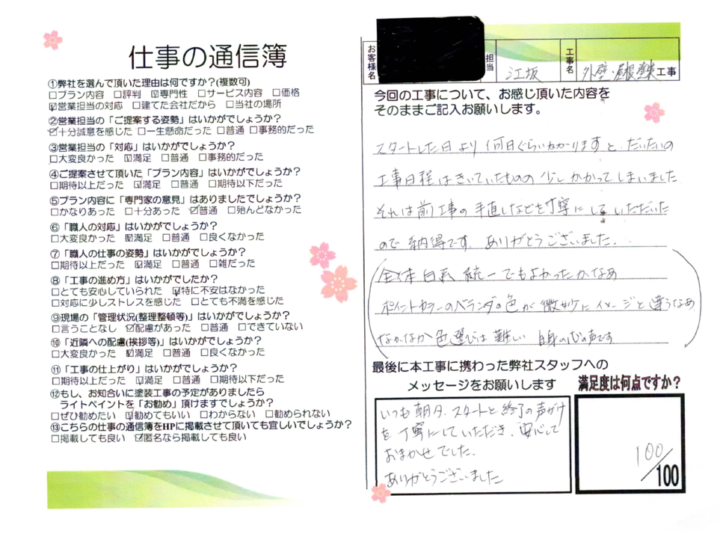 仕事の通信簿
①弊社を選んで頂いた理由は何ですか?(複数可)
□プラン内容 □評判 ☑専門性 □サービス内容 □価格
☑営業担当の対応 □建てた会社だから □当社の場所
②営業担当の「ご提案する姿勢」はいかがでしょうか?
☑十分誠意を感じた □一生懸命だった □普通 □事務的だった
③営業担当の「対応」はいかがでしょうか?
□大変良かった ☑満足 □普通 □事務的だった
④ご提案させて頂いた「プラン内容」はいかがでしょうか?
□期待以上だった ☑満足 □普通 □期待以下だった
⑤プラン内容に「専門家の意見」はありましたでしょうか?
□かなりあった □十分あった ☑普通 □殆んどなかった
⑥「職人の対応」はいかがでしょうか?
□大変良かった ☑満足 □普通 □良くなかった
⑦「職人の仕事の姿勢」はいかがでしょうか?
□期待以上だった ☑満足 □普通 □雑だった
⑧「工事の進め方」はいかがでしたか?
□とても安心していられた ☑特に不安はなかった
□対応に少しストレスを感じた □とても不満を感じた
⑨現場の「管理状況(整理整頓等)」はいかがでしょうか?
□言うことなし ☑配慮があった □普通 □できていない
⑩「近隣への配慮(挨拶等)」はいかがでしょうか?
□大変良かった ☑満足 □普通 □良くなかった
⑪「工事の仕上がり」はいかがでしょうか?
□期待以上だった ☑満足 □普通 □期待以下だった
⑫もし、お知合いに塗装工事の予定がありましたら
ライトペイントを「お勧め」頂けますでしょうか?
□ぜひ勧めたい ☑勧めてもいい □わからない □勧められない
⑬こちらの仕事の通信簿をHPに掲載させて頂いても宜しいでしょうか?
□掲載しても良い ☑匿名なら掲載しても良い
お客様名
担当 江坂
工事名 外壁・屋根塗装工事
今回の工事について、お感じ頂いた内容を
そのままご記入お願いします。
スタートした日より 何日ぐらいかかりますと、だいたいの
工事日程はきいていたものの 少しかかってしまいました
それは前工事の手直しなどを丁寧にしていただいた
ので納得です ありがとうございました.
(全体白系統一でもよかったかなあ
ポイントカラーのベランダの色が微妙にイメージと違うなあ
なかなか色選びは難しい 自身の心の声です)
最後に本工事に携わった弊社スタッフへの
メッセージをお願いします
いつも朝夕、スタートと終了の声がけ
を丁寧にしていただき、安心して
おまかせでした.
ありがとうございました
満足度は何点ですか?
100/100